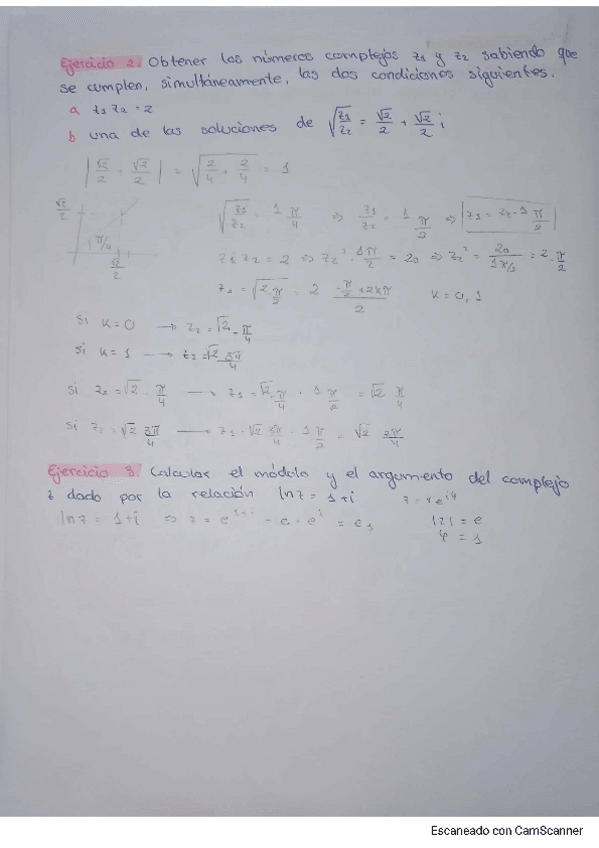 Ejercicio 2. Obtener los números complejos z₁ y z₂ sabiendo que
se cumplen, simultáneamente, las dos condiciones siguientes.
a z₁ z₂ = 2
b una de las soluciones de √(z₁/z₂) = √2/2 + √2/2 i
|√2/2 + √2/2| = √(2/4 + 2/4) = 1
√2/2
π/4
√2/2
√(z₁/z₂) = 1 π/4 ⇒ z₁/z₂ = 1 π/2 ⇒ z₁ = z₂ · 1 π/2
z₁ z₂ = 2 ⇒ z₂² · 1 π/2 = 2₀ ⇒ z₂² = 2₀/1π/2 = 2 -π/2
z₂ = √(2 -π/2) = 2 (-π/2 + 2kπ)/2 k = 0, 1
Si k = 0 → z₂ = √2 -π/4
Si k = 1 → z₂ = √2 3π/4
si z₂ = √2 -π/4 → z₁ = √2 -π/4 · 1 π/2 = √2 π/4
si z₂ = √2 3π/4 → z₁ = √2 3π/4 · 1 π/2 = √2
Ejercicio 3. Calcular el módulo y el argumento del complejo
z dado por la relación ln z = 1+i z = r e^iφ
ln z = 1+i ⇒ z = e^(1+i) = e · e^i = e₁ |z| = e
φ = 1
Escaneado con CamScanner